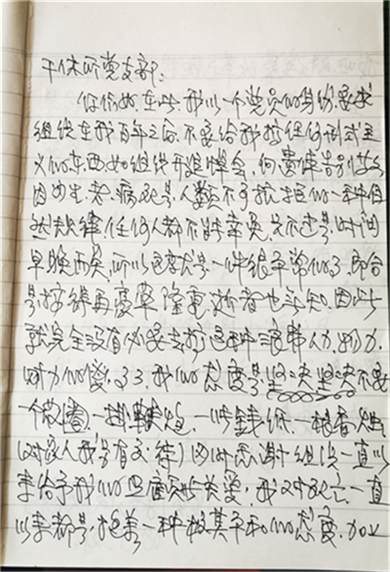 干休所党支部:
你们好,在此,我以一个党员的身份,要求
组织在我百年之后,不要给我搞任何形式主
义的东西,如组织开追悼会,向遗体告别仪式
因为生、老、病、死是人类不可抗拒的一种自
然规律任何人都不能幸免,只不过是时间
早晚而矣,所以这实是一件很平常的事,即令
是搞得再豪华隆重,逝者也无知,因此
就完全没有必要去搞这种浪费人力、物力、
财力的傻事了,我的态度是坚决坚决不要
一个花圈、一挂鞭炮、一些钱纸、一根香烛
(对家人我是有交待)同时感谢组织一直以
来给予我的照顾与关爱,我对死亡一直
以来都是,抱着一种极其平和的态度,加上